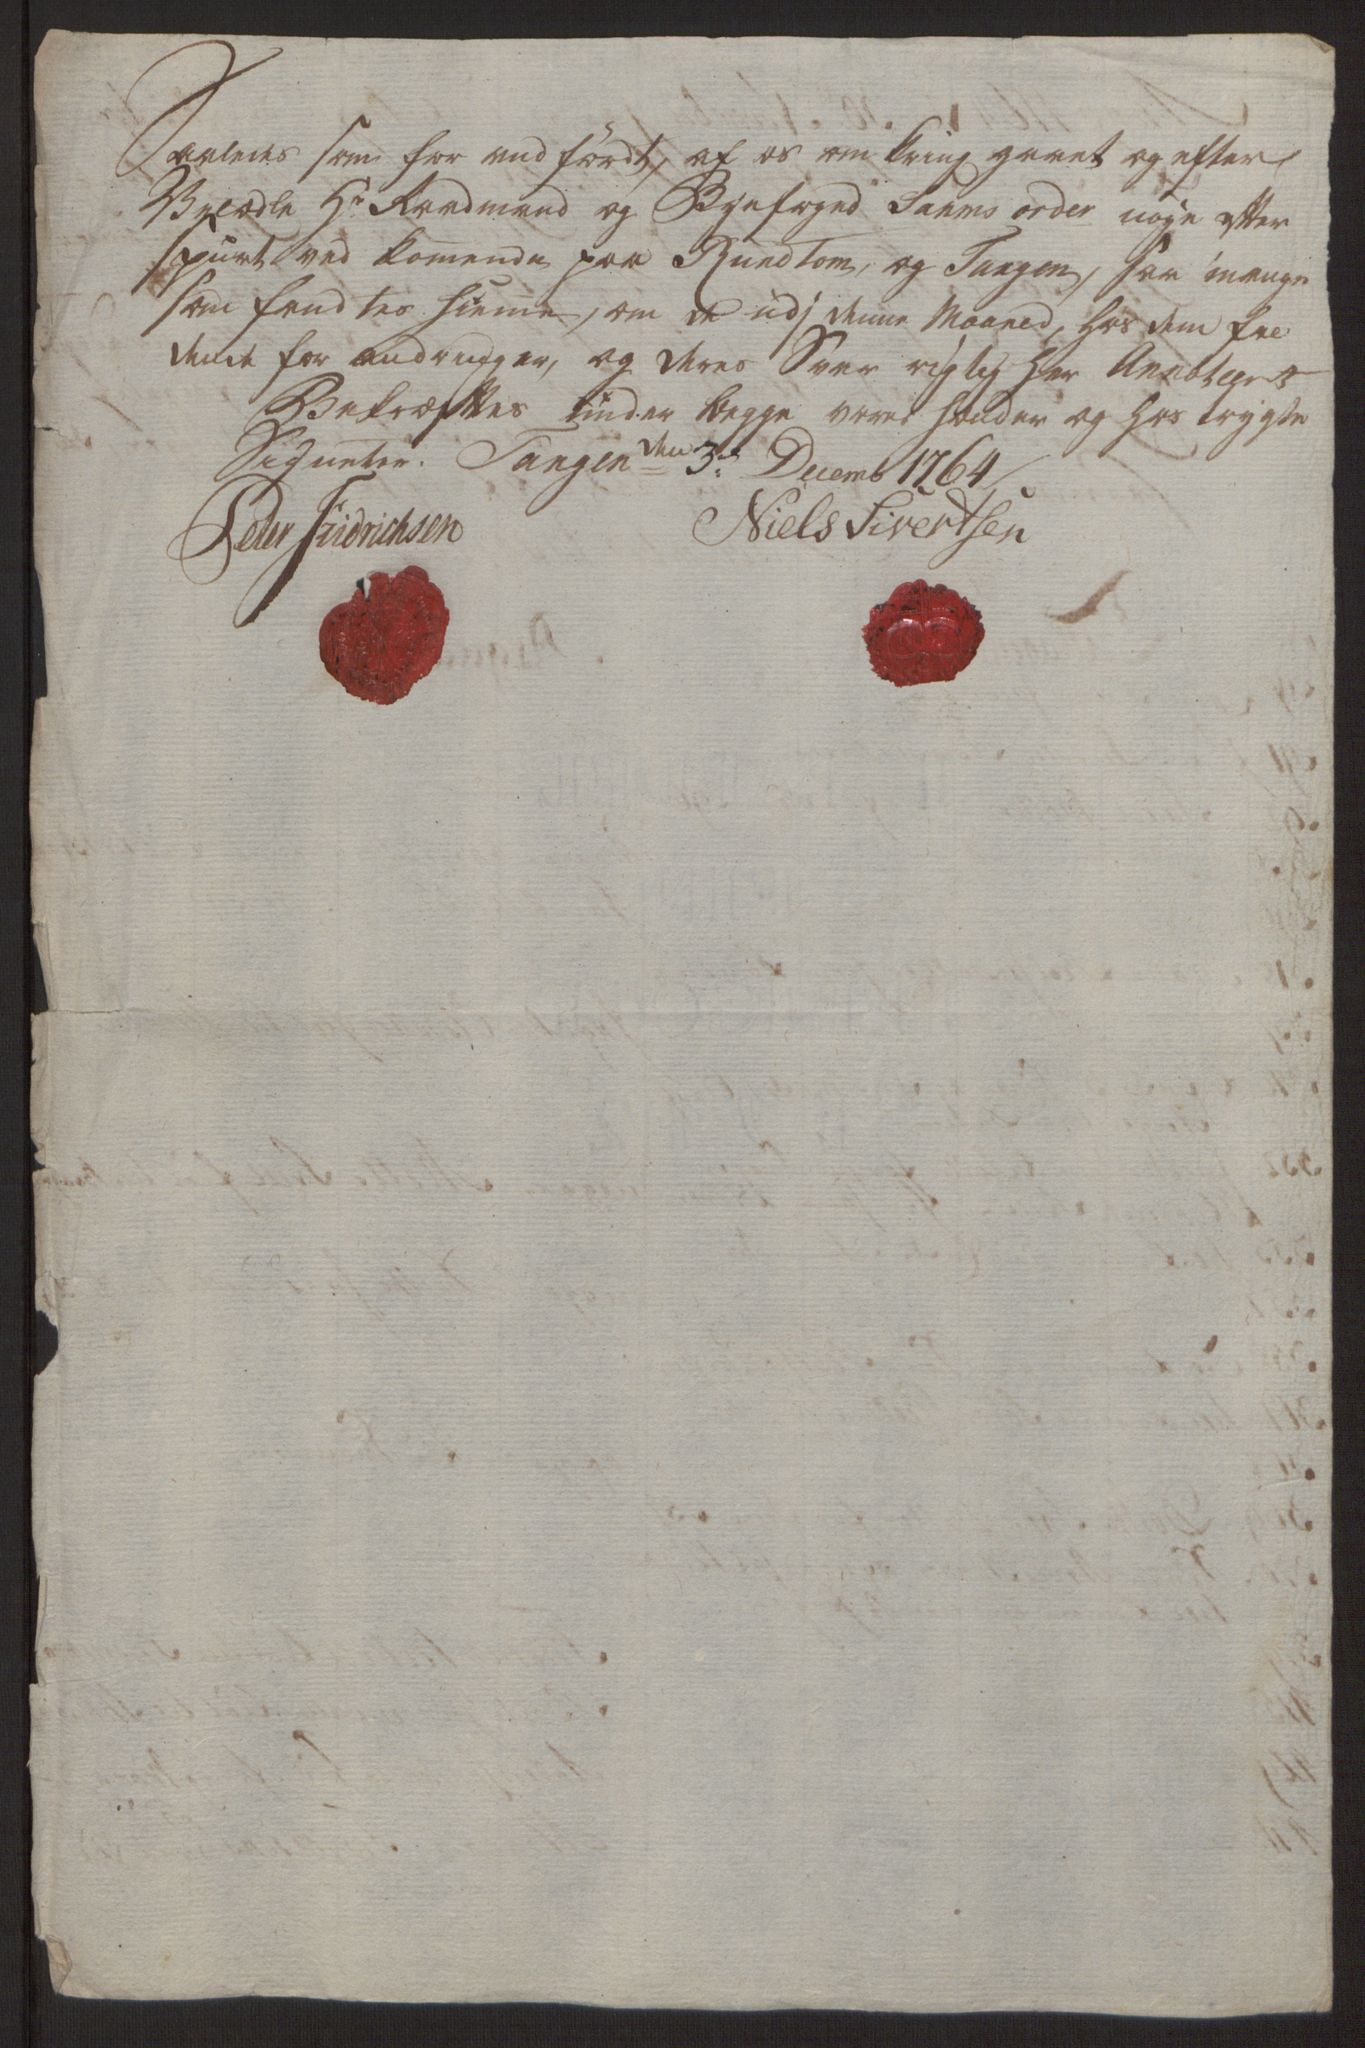 Saaledes som for andfördt, af os om kring gaaet og efter
Velædle Hr Raadmand og Byefoged Saxns order nöye efter
spurt ved kommende paa Rundtom, og Tangen, saa mange
som fandtes hieme, om de udj denne Maaned, hos dem
for andringer, og deres Svar rigtig her Annotegnet
Bekræfftes under begge vores hænder og hos trygte
Signeter. Tangen den 3: Decemb 1764
Peder Fridrichsen Niels Sivertsen